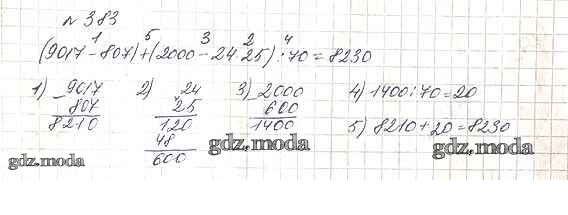 № 383
1 5 3 2 4
(9017 - 807) + (2000 - 24·25) : 70 = 8230
1) 9017 2) 24 3) 2000 4) 1400 : 70 = 20
- 807 × 25 - 600 5) 8210 + 20 = 8230
8210 120 1400
48
600
gdz.moda
gdz.moda
gdz.moda